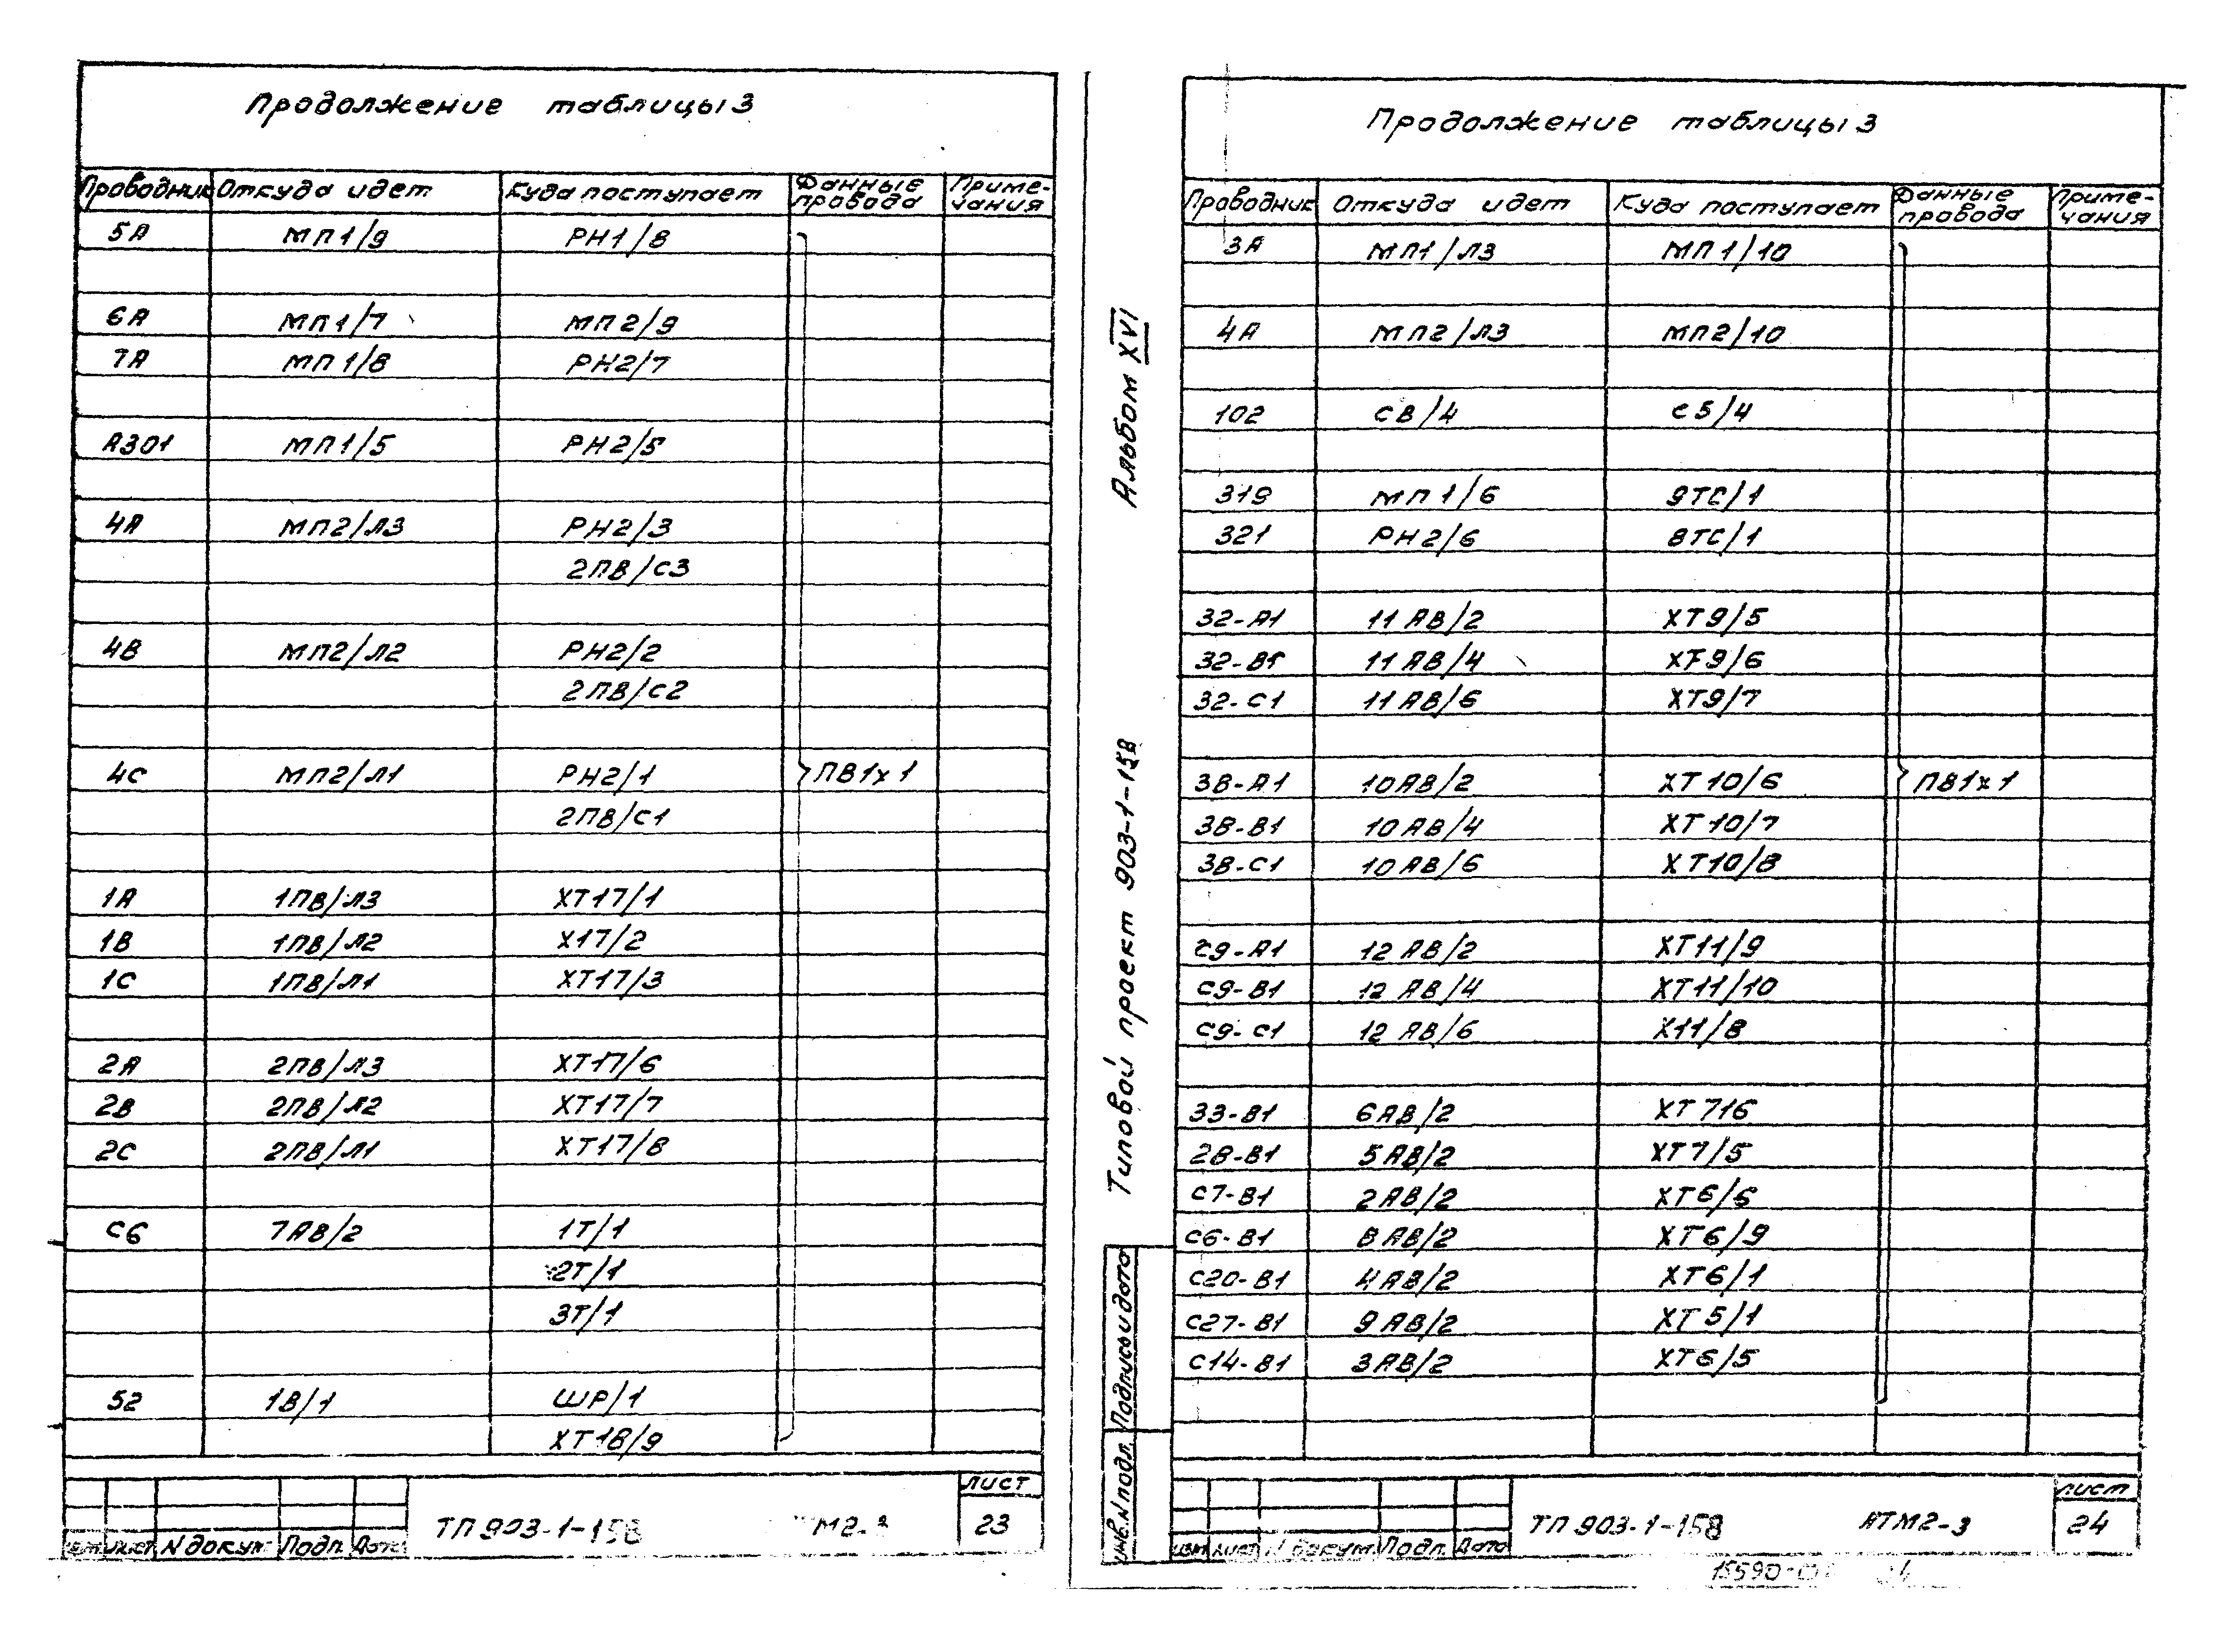 Продолжение таблицы 3
Проводник Откуда идет Куда поступает Данные провода Примечания
5А МП1/9 РН1/8
6А МП1/7 МП2/9
7А МП1/8 РН2/7
А301 МП1/5 РН2/5
4А МП2/Л3 РН2/3
2ПВ/С3
4В МП2/Л2 РН2/2
2ПВ/С2
4С МП2/Л1 РН2/1 ПВ1х1
2ПВ/С1
1А 1ПВ/Л3 ХТ17/1
1В 1ПВ/Л2 Х17/2
1С 1ПВ/Л1 ХТ17/3
2А 2ПВ/Л3 ХТ17/6
2В 2ПВ/Л2 ХТ17/7
2С 2ПВ/Л1 ХТ17/8
С6 7АВ/2 1Т/1
2Т/1
3Т/1
52 1В/1 ШР/1
ХТ18/9
лист
ТП 903-1-158 М2-3 23
лист N докум Подп. Дата
Альбом XVI
Типовой проект 903-1-158
Подпись и дата
Инв. N подл.
Продолжение таблицы 3
Проводник Откуда идет Куда поступает Данные провода Примечания
3А МП1/Л3 МП1/10
4А МП2/Л3 МП2/10
102 С8/4 С5/4
319 МП1/6 9ТС/1
321 РН2/6 8ТС/1
32-А1 11АВ/2 ХТ9/5
32-В1 11АВ/4 ХТ9/6
32-С1 11АВ/6 ХТ9/7
38-А1 10АВ/2 ХТ10/6 ПВ1х1
38-В1 10АВ/4 ХТ10/7
38-С1 10АВ/6 ХТ10/8
С9-А1 12АВ/2 ХТ11/9
С9-В1 12АВ/4 ХТ11/10
С9-С1 12АВ/6 Х11/8
33-В1 6АВ/2 ХТ716
28-В1 5АВ/2 ХТ7/5
С7-В1 2АВ/2 ХТ6/6
С6-В1 8АВ/2 ХТ6/9
С20-В1 4АВ/2 ХТ6/1
С27-В1 9АВ/2 ХТ5/1
С14-В1 3АВ/2 ХТ6/5
лист
ТП 903-1-158 АТМ2-3 24
изм лист N докум Подп. Дата
15590-